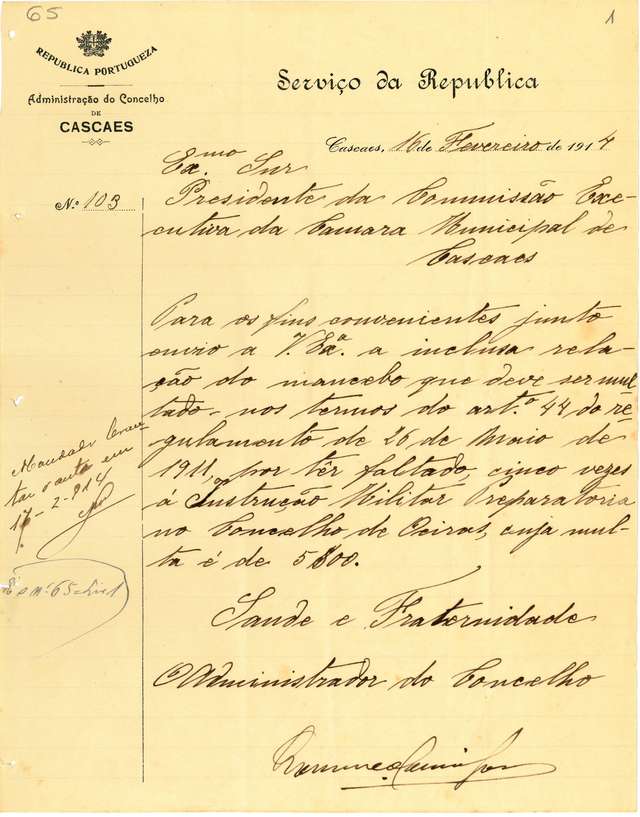 65
1
REPUBLICA PORTUGUEZA
Administração do Concelho
DE
CASCAES
Serviço da Republica
Cascaes, 16 de Fevereiro de 1914
Nº 103
Exmo Snr
Presidente da Commissão Exe-
cutiva da Camara Municipal de
Cascaes
Para os fins convenientes junto
envio a V. Exª. a inclusa rela-
ção do mancebo que deve ser mul
tado, nos termos do artº 44 do re-
gulamento de 26 de Maio de
1911, por têr faltado, cinco vezes
á Instrução Militar Preparatoria
no Concelho de Oeiras, cuja mul-
ta é de 5$00.
Mandado
em
17-2-914
É o nº 65
Saude e Fraternidade
O Administrador do Concelho